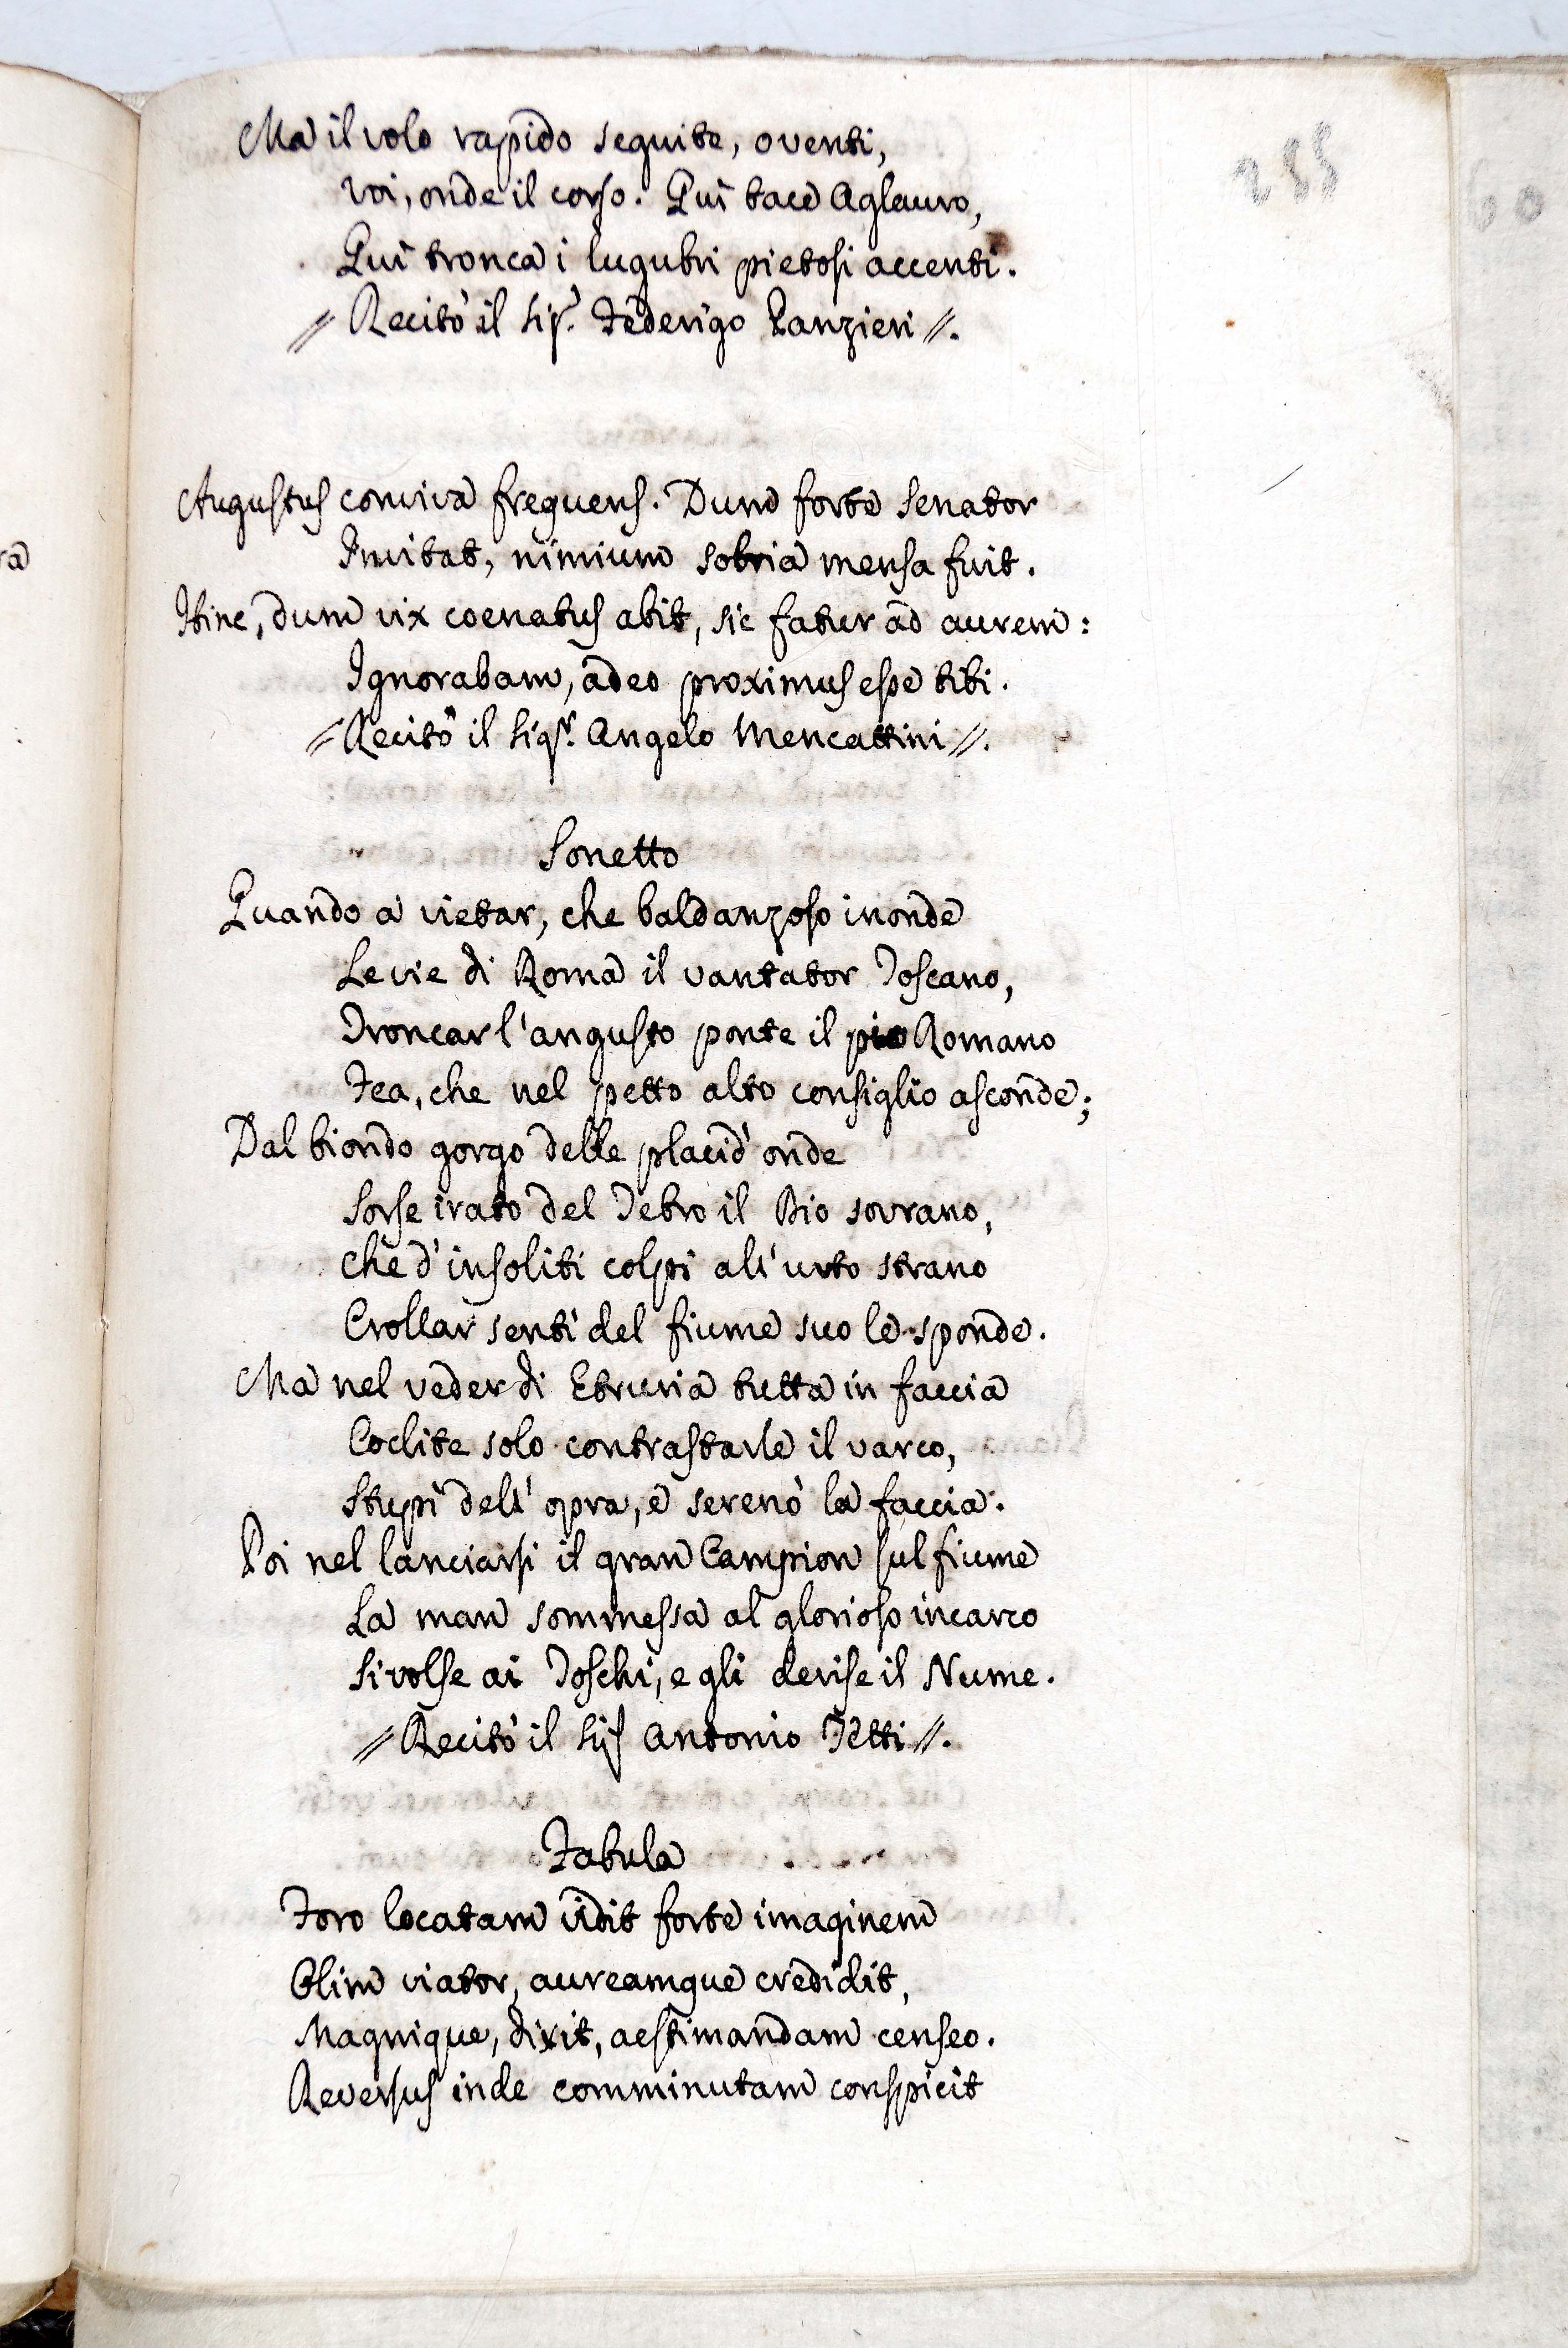 255
60
Ma il volo rapido seguite, o venti,
Voi, onde il corso. Quì tace Aglauro,
Quì tronca i lugubri pietosi accenti.
// Recitò il Sigʳ. Federigo Panzieri //.
Augustus conviva frequens. Dum forte senator
Invitat, nimium sobria mensa fuit.
Hinc, dum vix coenatus abit, sic fatur ad aurem:
Ignorabam, adeo proximus esse tibi.
// Recitò il Sigʳ. Angelo Mencattini //.
Sonetto
Quando a vietar, che baldanzoso inonde
Le vie di Roma il vantator Toscano,
Troncar l'angusto ponte il pio Romano
Fea, che nel petto alto consiglio asconde;
Dal biondo gorgo delle placid' onde
Sorse irato del Tebro il Dio sovrano,
Che d'insoliti colpi all'urto strano
Crollar sentì del fiume suo le sponde.
Ma nel veder di Etruria tutta in faccia
Coclite solo contrastarle il varco,
Stupì dell' opra, e serenò la faccia.
Poi nel lanciarsi il gran Campion sul fiume
La man sommessa al glorioso incarco
Si volse ai Toschi, e gli derise il Nume.
// Recitò il Sig Antonio Tetti //.
Fabula
Foro locatam vidit forte imaginem
Olim viator, aureamque credidit,
Magnique, dixit, aestimandam censeo.
Reversus inde comminutam conspicit